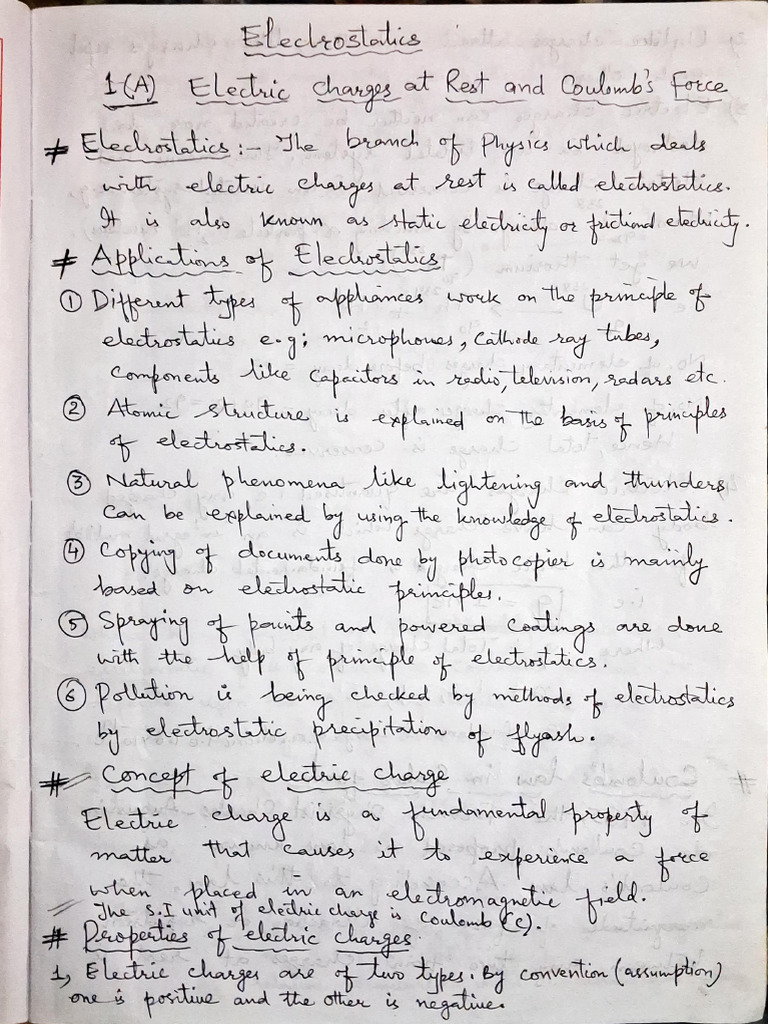 Electrostatics
1(A) Electric charges at Rest and Coulomb's Force
# Electrostatics :- The branch of Physics which deals
with electric charges at rest is called electrostatics.
It is also known as static electricity or frictional electricity.
# Applications of Electrostatics
① Different types of appliances work on the principle of
electrostatics e.g; microphones, cathode ray tubes,
components like capacitors in radio, television, radars etc.
② Atomic structure is explained on the basis of principles
of electrostatics.
③ Natural phenomena like lightening and thunders
can be explained by using the knowledge of electrostatics.
④ Copying of documents done by photocopier is mainly
based on electrostatic principles.
⑤ Spraying of paints and powered coatings are done
with the help of principle of electrostatics.
⑥ Pollution is being checked by methods of electrostatics
by electrostatic precipitation of flyash.
# Concept of electric charge
Electric charge is a fundamental property of
matter that causes it to experience a force
when placed in an electromagnetic field.
The S.I unit of electric charge is Coulomb (C).
# Properties of electric charges
1, Electric charges are of two types. By convention (assumption)
one is positive and the other is negative.